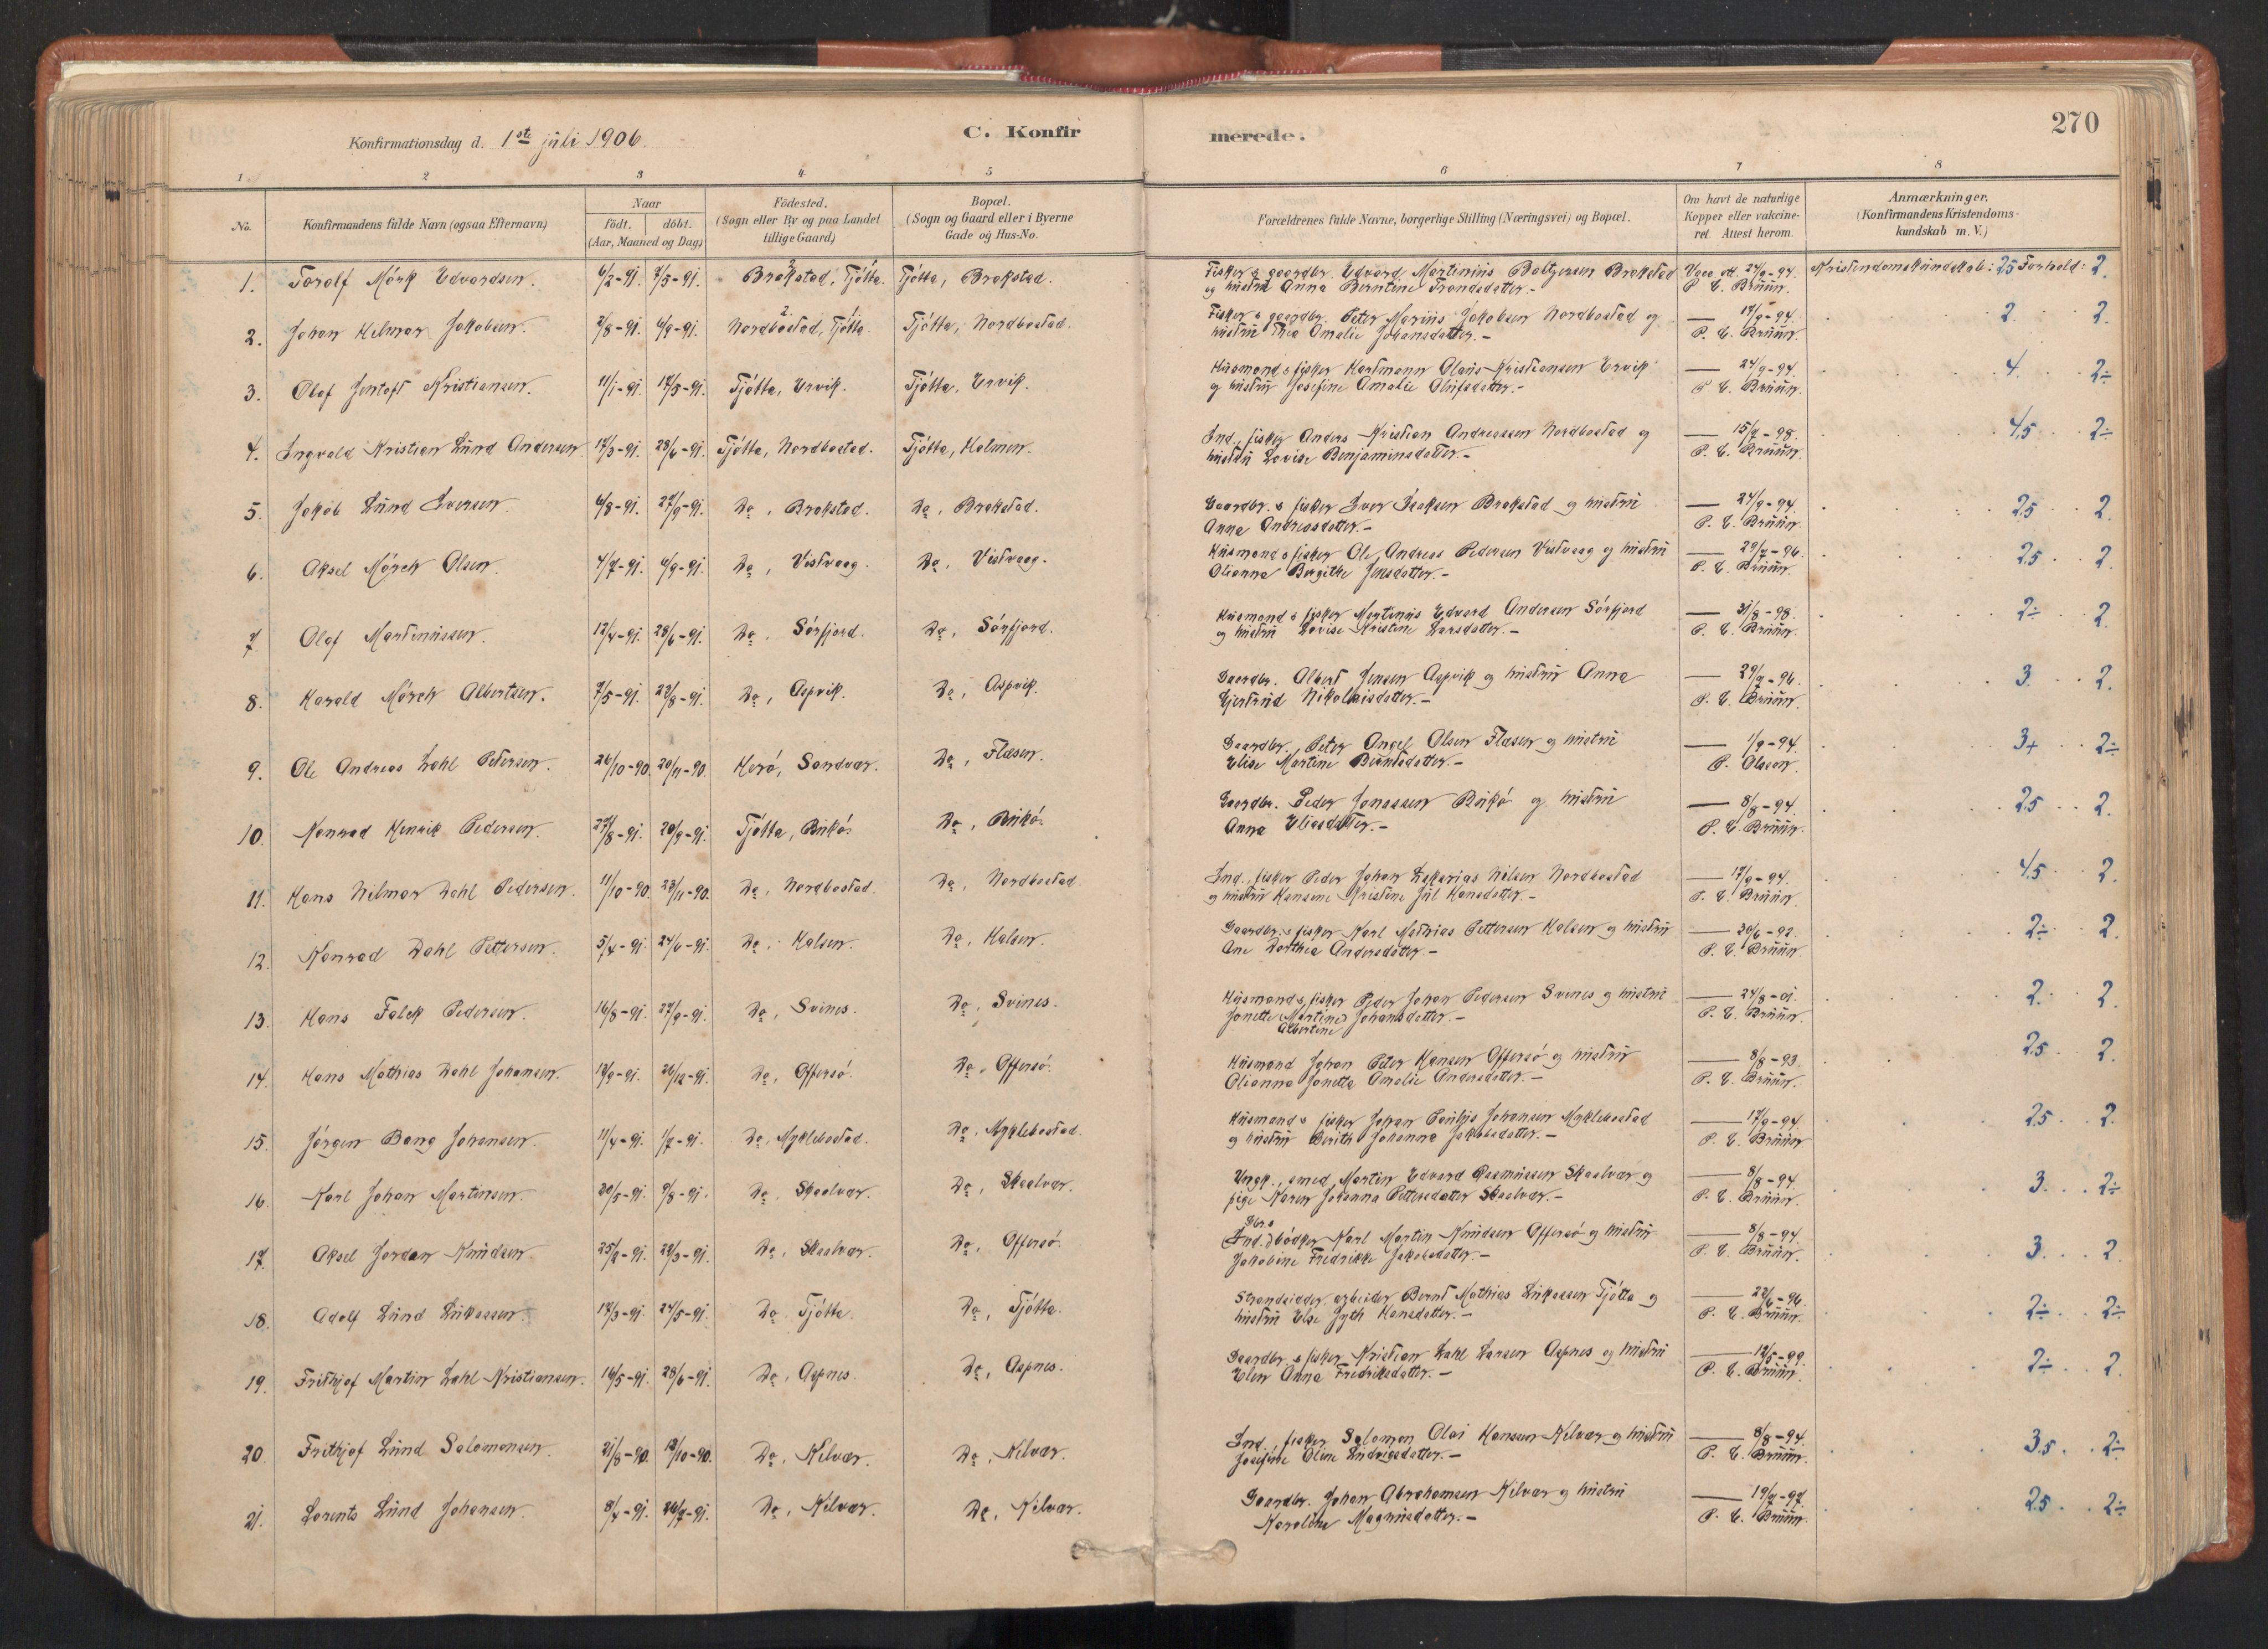 270
Konfirmationsdag d. 1ste juli 1906.
C. Konfirmerede.
1 2 3 4 5 6 7 8
No. Konfirmandens fulde Navn (ogsaa Efternavn) Naar födt. döbt. (Aar, Maaned og Dag) Födested. (Sogn eller By og paa Landet tillige Gaard) Bopæl. (Sogn og Gaard eller i Byerne Gade og Hus-No. Forældrenes fulde Navne, borgerlige Stilling (Næringsvei) og Bopæl. Om havt de naturlige Kopper eller vakcineret. Attest herom. Anmærkninger. (Konfirmandens Kristendomskundskab m. V.)
1. Torolf Mörk Edvardsen. 6/2-91. 7/5-91. Brakstad, Tjötta. Tjötta, Brakstad. Fisker & gaardbr. Edvard Martinius Baltzersen Brakstad Vacc. att. 24/9-94. Kristendomskundskab: 2,5 Forhold: 2.
og hustru Anna Berntine Trondsdatter.- P. E. Bruun.
2. Johan Hilmar Jakobsen. 2/8-91. 6/9-91. Nordbostad, Tjötta. Tjötta, Nordbostad. Fisker & gaardbr. Peter Marius Jakobsen Nordbostad og — 17/9-94. 2. 2.
hustru Thea Amalie Johansdatter.- P. E. Bruun.
3. Olaf Jentoft Kristiansen. 11/1-91. 17/5-91. Tjötta, Ervik. Tjötta, Ervik. Husmand & fisker Hartmann Olaus Kristiansen Ervik — 24/9-94. 4. 2÷
og hustru Josefine Amalie Olufsdatter.- P. E. Bruun.
4. Ingvald Kristian Lund Andersen 17/3-91. 28/6-91. Tjötta, Nordbostad. Tjötta, Holmen. Ind., fisker Anders Kristian Andreassen Nordbostad og — 15/7-98. 4,5 2÷
hustru Lovise Benjaminsdatter.- P. E. Bruun.
5. Jakob Lund Iversen. 6/8-91. 27/9-91. Do, Brakstad. Do, Brakstad. Gaardbr. & fisker Iver Isaksen Brakstad og hustru — 24/9-94. 2,5 2.
Anna Andreasdatter.- P. E. Bruun.
6. Aksel Mörch Olsen. 4/7-91. 6/9-91. Do, Vistvaag. Do, Vistvaag. Husmand & fisker Ole Andreas Pedersen Vistvaag og hustru — 29/7-96. 2,5 2.
Olianna Birgithe Jensdatter.- P. E. Bruun.
7. Olaf Martinussen. 12/4-91. 28/6-91. Do, Sörfjord. Do, Sörfjord. Husmand & fisker Martinus Edvard Andersen Sörfjord — 31/8-98. 2÷ 2.
og hustru Lovise Kristine Larsdatter.- P. E. Bruun.
8. Harald Mörch Albertsen. 7/5-91. 23/8-91. Do, Aspvik. Do, Aspvik. Gaardbr. Albert Jensen Aspvik og hustru Anna — 29/7-96. 3. 2.
Gjertrud Nikolaisdatter.- P. E. Bruun.
9. Ole Andreas Dahl Petersen. 26/10-90. 20/11-90. Herö, Sandvær. Do, Flæsen. Gaardbr. Peter Angel Olsen Flæsen og hustru — 1/9-94. 3+ 2÷
Elise Martine Berntsdatter.- P. Olsson.
10. Konrad Henrik Pedersen. 27/8-91. 20/9-91. Tjötta, Rukö. Do, Rukö. Gaardbr. Peder Jonassen Rukö og hustru — 8/8-94. 2,5 2.
Anna Eliasdatter.- P. E. Bruun.
11. Hans Hilmar Dahl Pedersen. 11/10-90. 23/11-90. Do, Nordbostad. Do, Nordbostad. Ind., fisker Peder Johan Zakarias Nilsen Nordbostad — 17/9-94. 4,5 2.
og hustru Hansine Kristine Jul Hansdatter.- P. E. Bruun.
12. Konrad Dahl Pettersen. 5/4-91. 24/6-91. Do, Halsen. Do, Halsen. Gaardbr. & fisker Karl Mathias Pettersen Halsen og hustru — 30/6-92. 2÷ 2.
Ane Dorthea Andersdatter.- P. E. Bruun.
13. Hans Falck Pedersen. 16/8-91. 27/9-91. Do, Svines. Do, Svines. Husmand & fisker Peder Johan Pedersen Svines og hustru — 24/8-01. 2. 2.
Jonette (Martine) Johansdatter.- P. E. Bruun.
Albertine
14. Hans Mathias Dahl Johansen. 12/9-91. 26/12-91. Do, Offersö. Do, Offersö. Husmand Johan Peter Hansen Offersö og hustru — 8/8-93. 2,5 2.
Olianna Jonetta Amalie Andersdatter.- P. E. Bruun.
15. Jörgen Bang Johansen. 11/4-91. 1/7-91. Do, Myklebostad. Do, Myklebostad. Husmand & fisker Johan Paulus Johansen Myklebostad — 17/9-94. 2,5 2.
og hustru Berith Johanna Jakobsdatter.- P. E. Bruun
16. Karl Johan Martinsen. 20/5-91. 9/8-91. Do, Skaalvær. Do, Skaalvær. Ungk., smed, Martin Edvard Rasmussen Skaalvær og — 8/8-94. 3. 2÷
pige Karen Johanna Pettersdatter Skaalvær.- P. E. Bruun.
17. Aksel Jordan Knudsen. 25/2-91. 22/3-91. Do, Skaalvær. Do, Offersö. Gbr. & (Ind.) bödker Karl Martin Knudsen Offersö og hustru — 8/8-94. 3. 2.
Jakobine Fredrikke Jakobsdatter.- P. E. Bruun.
18. Adolf Lund Lukassen. 17/3-91. 24/5-91. Do, Tjötta. Do, Tjötta. Strandsidder, arbeider Bernt Mathias Lukassen Tjötta og — 22/6-96. 2÷ 2÷
hustru Else Hansdatter.- P. E. Bruun.
19. Frithjof Martin Dahl Kristiansen. 16/5-91. 28/6-91. Do, Aspnes. Do, Aspnes. Gaardbr. & fisker Kristian Dahl Larsen Aspnes og hustru — 12/5-99. 2÷ 2.
Elen Anna Fredriksdatter.- P. E. Bruun.
20. Frithjof Lund Salomonsen. 21/8-90. 12/10-90. Do, Kilvær. Do, Kilvær. Ind., fisker Salomon Olai Hansen Kilvær og hustru — 8/8-94. 3,5 2÷
Josefine Oline Ludvigsdatter.- P. E. Bruun.
21. Lorents Lund Johansen. 8/4-91. 26/7-91. Do, Kilvær. Do, Kilvær. Gaardbr. Johan Abrahamsen Kilvær og hustru — 19/7-97. 2,5 2÷
Karoline Magnusdatter.- P. E. Bruun.